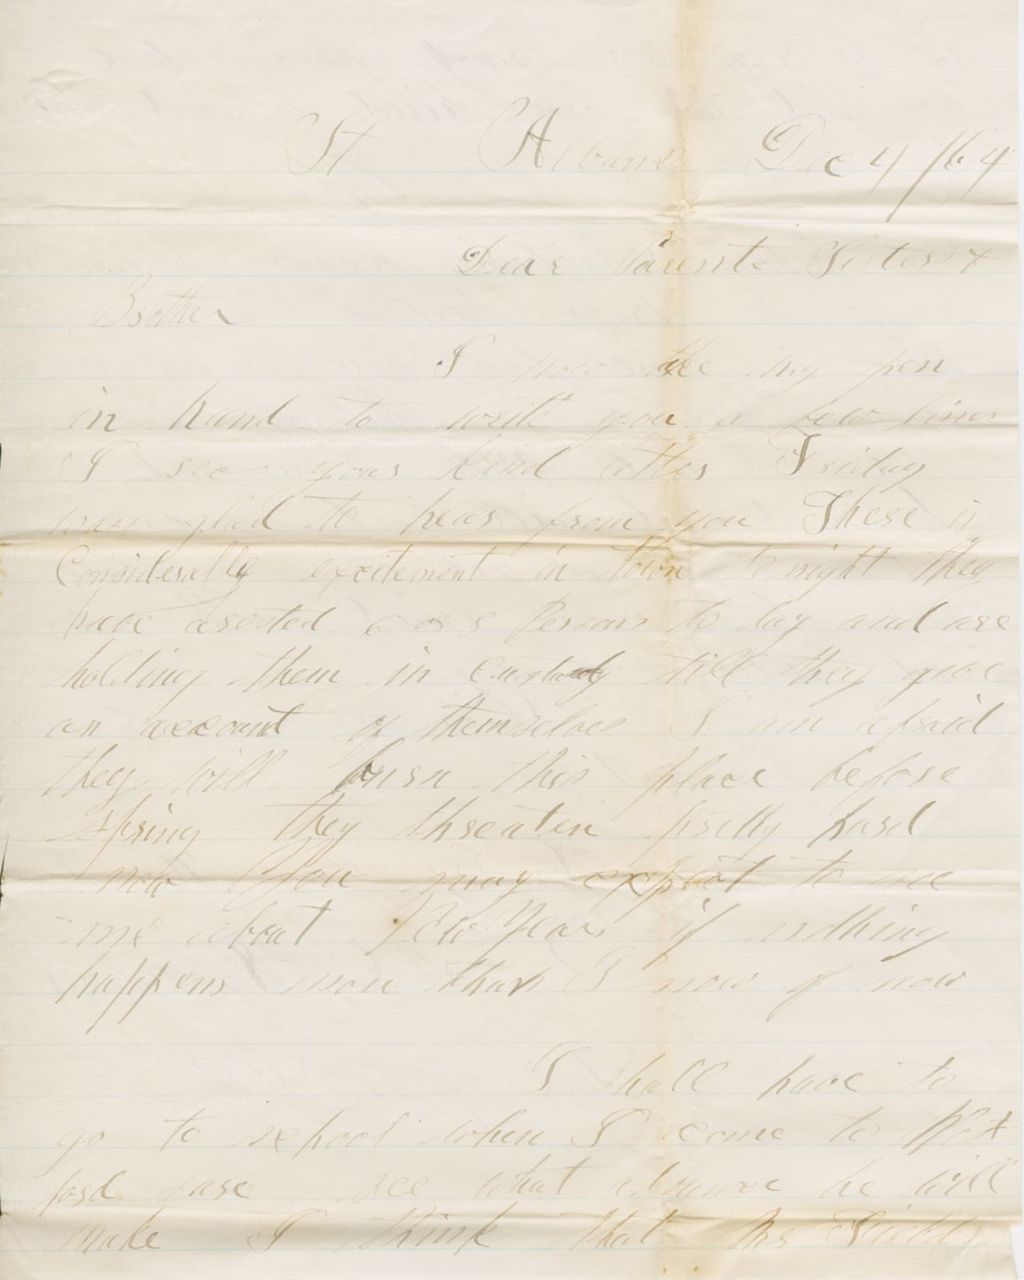 St Albans Dec 4 /64
Dear Parents Sisters &
Brother
I now take my pen
in hand to write you a few lines
I rec your kind letter Friday
was glad to hear from you There is
Considerally excitement in town to night they
have arested 6 or 8 Persons to day and are
holding them in Custody till they give
an account of themselves I am afraid
they will burn this place before
Spring they threaten pretty hard
now You may expect to see
me about New Years if nothing
happens more than I now of now
I shall have to
go to school when I come to
ford see what advance he will
make I think that Mrs